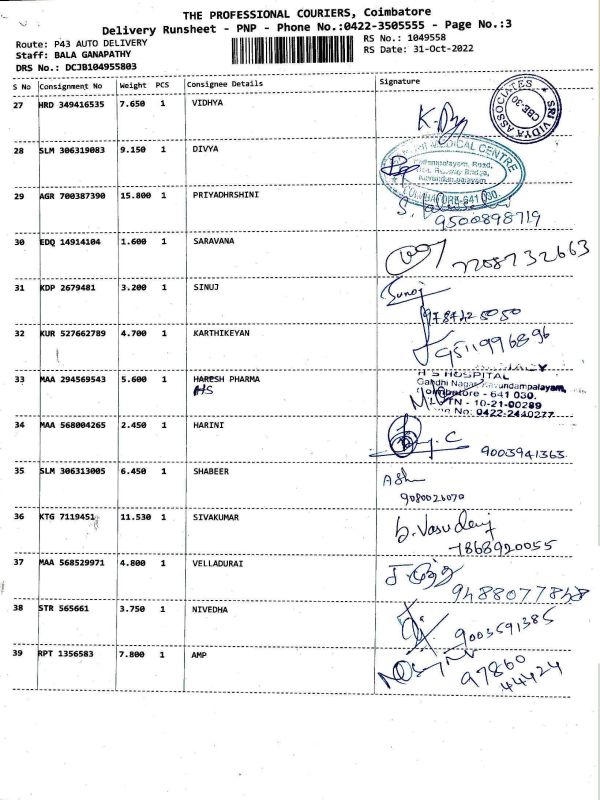 THE PROFESSIONAL COURIERS, Coimbatore
Delivery Runsheet - PNP - Phone No.:0422-3505555 - Page No.:3
Route: P43 AUTO DELIVERY
RS No.: 1049558
Staff: BALA GANAPATHY
RS Date: 31-Oct-2022
DRS No.: DCJB104955803
S No Consignment No Weight PCS Consignee Details Signature
27 HRD 349416535 7.650 1 VIDHYA
SRI VIDYA ASSOCIATES
CBE-30
28 SLM 306319083 9.150 1 DIVYA
MEDICAL CENTRE
COIMBATORE-641 030.
29 AGR 700387390 15.800 1 PRIYADHRSHINI
9500898719
30 EDQ 14914104 1.600 1 SARAVANA
7208732663
31 KDP 2679481 3.200 1 SINUJ
Sunoj
32 KUR 527662789 4.700 1 KARTHIKEYAN
9511996896
33 MAA 294569543 5.600 1 HARESH PHARMA
HS
H S HOSPITAL
Gandhi Nagar, Kavundampalayam,
Coimbatore - 641 030.
TN - 10-21-00289
No: 0422-2440277
34 MAA 568004265 2.450 1 HARINI
9003941363
35 SLM 306313005 6.450 1 SHABEER
9080026070
36 KTG 7119451 11.530 1 SIVAKUMAR
7868920055
37 MAA 568529971 4.800 1 VELLADURAI
9488077848
38 STR 565661 3.750 1 NIVEDHA
9003591385
39 RPT 1356583 7.800 1 AMP
97860
44424